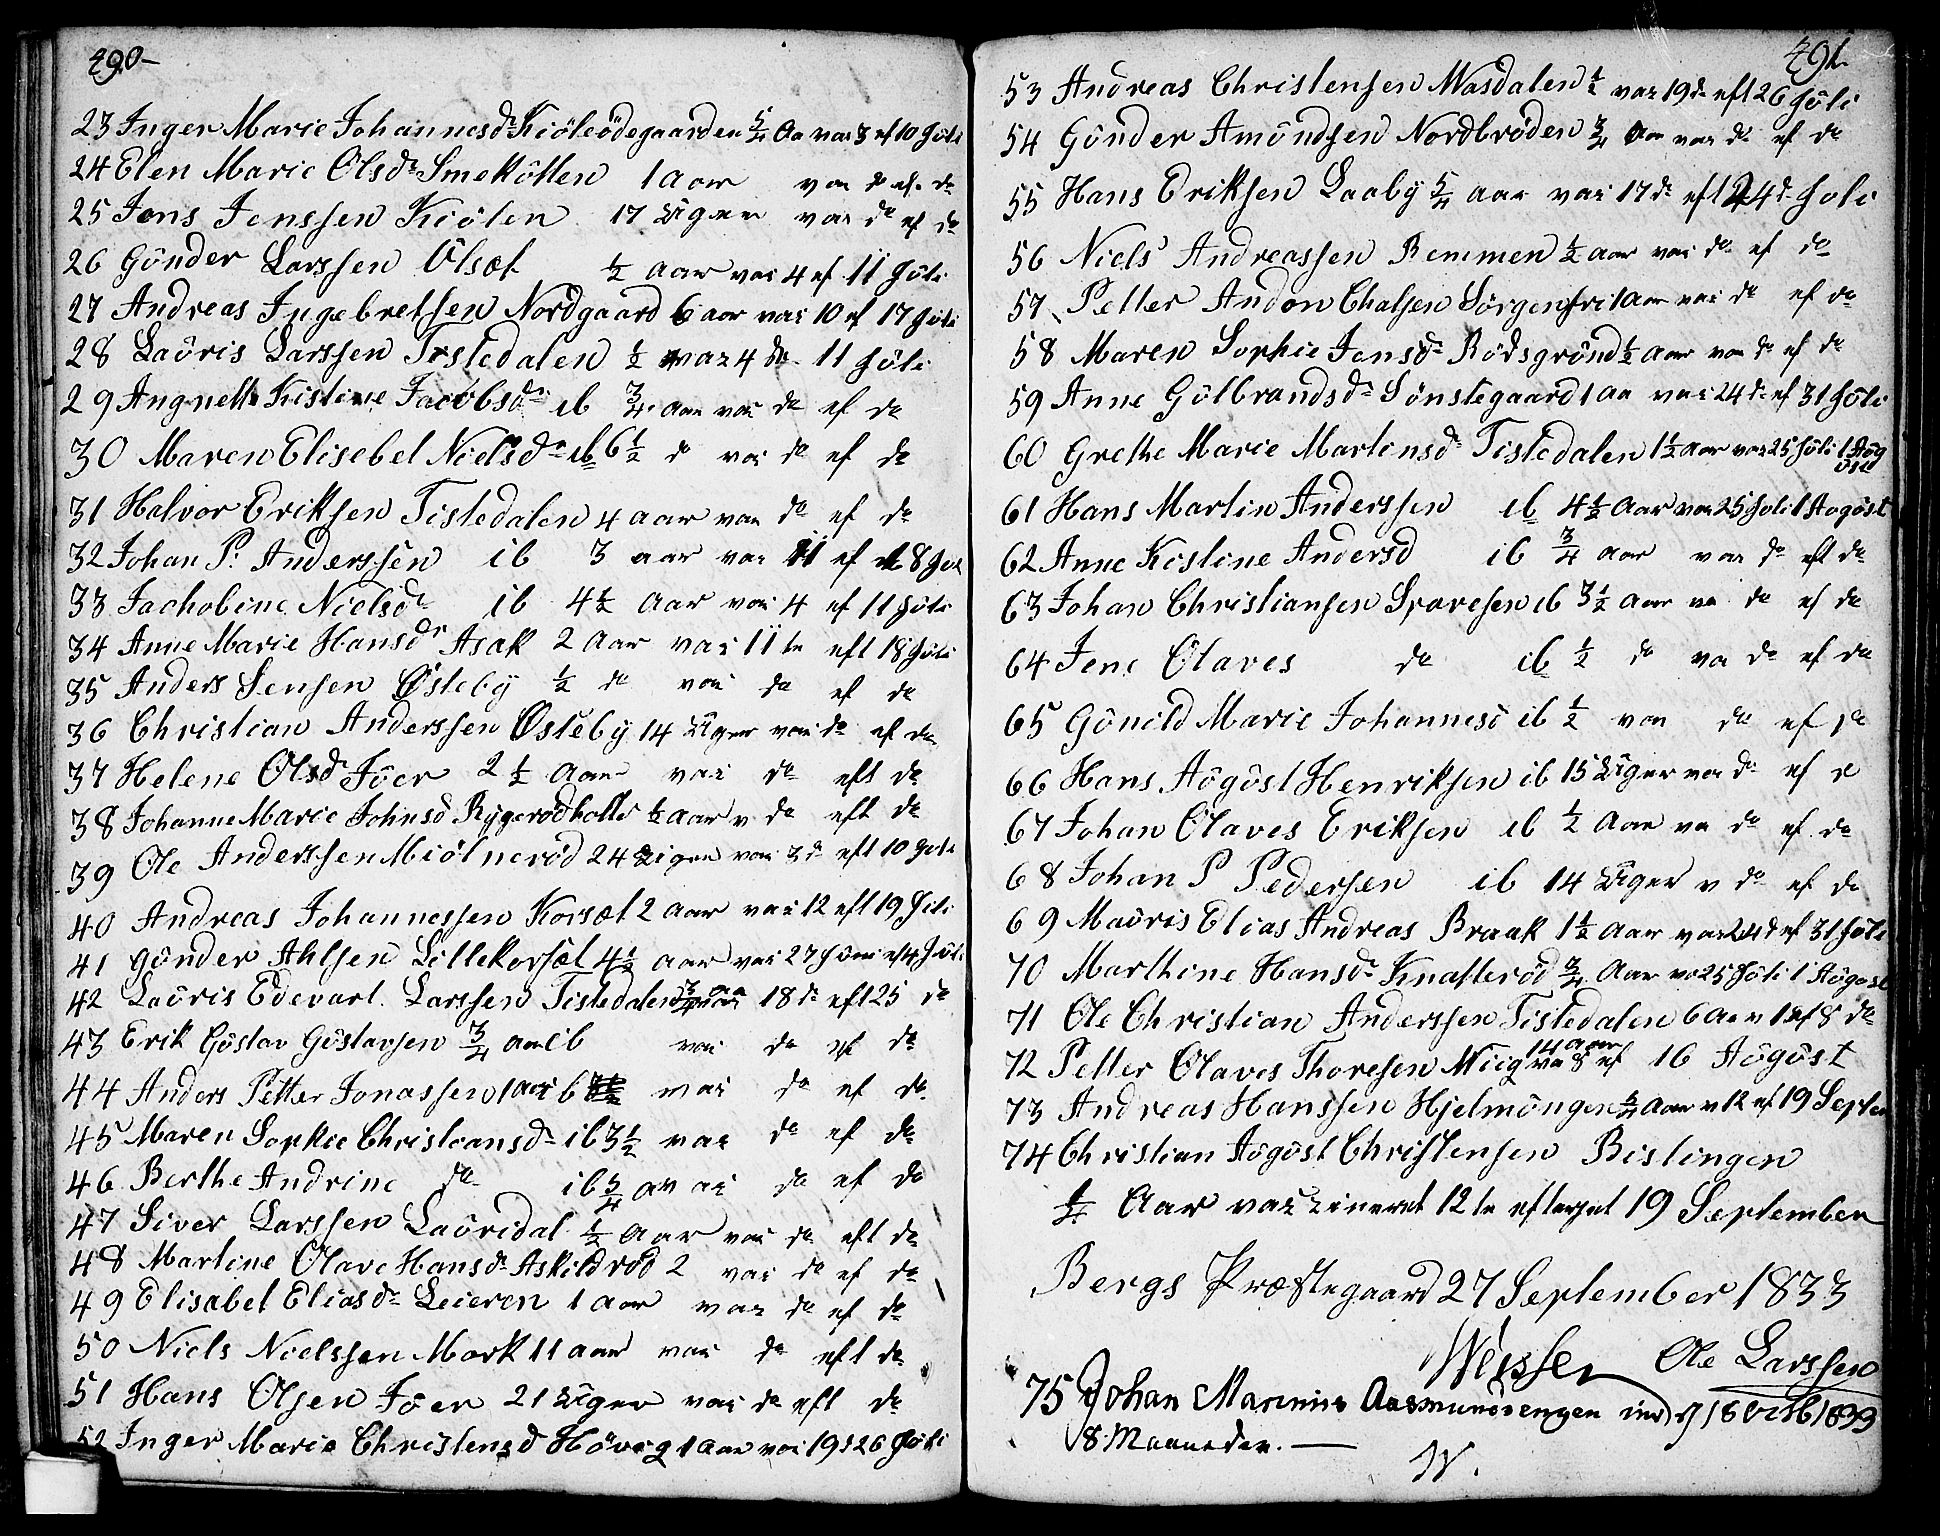 290
23 Inger Marie Johannesd Kiöleödegaarden 5/4 Aa var 3 ef 10 Jüli
24 Elen Marie Olsd Smeköllen 1 aar var do ef do
25 Jens Jenssen Kiölen 17 Üger var do ef do
26 Günder Larssen Ulsæt 1/2 aar var 4 ef 11 Jüli
27 Andreas Ingebretsen Nordgaard 6 aar var 10 ef 17 Jüli
28 Laüris Larssen Tistedalen 1/2 var 4 do 11 Jüli
29 Angnette Kistine Jacobsd ib 3/4 aar var do ef do
30 Maren Elisebet Nielsd ib 6 1/2 d var do ef do
31 Halvor Eriksen Tistedalen 4 aar var do ef do
32 Johan P. Anderssen ib 3 aar var 11 ef 18 Jül
33 Jachobine Nielsd ib 4 1/2 aar var 4 ef 11 Jüli
34 Anne Marie Hansd Asak 2 aar var 11te eft 18 Jüli
35 Anders Jensen Østeby 1/2 do var do ef do
36 Christian Anderssen Østeby 14 Üger var do ef do
37 Helene Olsd Jöer 2 1/2 Aar var do eft do
38 Johanne Marie Johnsd Rygerödholtt 1/2 aar v do eft do
39 Ole Anderssen Miölneröd 24 Üger var 3d eft 10 Jüli
40 Andreas Johannessen Korsæt 2 aar var 12 eft 19 Jüli
41 Günder Ahlsen Lillekorsæt 4 1/2 aar var 27 Jüni ef 4 Jüli
42 Laüris Edevart Larssen Tistedalen 3/4 aar var 18d eft 25 do
43 Erik Güstav Güstavsen 3/4 aar ib var do ef do
44 Anders Petter Jonassen 1 aar ib var do ef do
45 Maren Sophie Christiansd ib 3 1/2 var do ef do
46 Berthe Andrine do ib 5/4 a var do ef do
47 Siver Larssen Laüridal 1/2 aar var do eft do
48 Martine Olave Hansd Askildröd 2 var do ef do
49 Elisabet Eliasd Leieren 1 aar var do ef do
50 Niels Nielssen Mork 11 aar var do eft do
51 Hans Olsen Jöer 21 Üger var do eft do
52 Inger Marie Christensd Høvig 1 aar var 19 26 Jüli
291
53 Andreas Christensen Wasdalen 1/2 var 19d eft 26 Jüli
54 Günder Amündsen Nordbröden 3/4 aar var do ef do
55 Hans Eriksen Laaby 5/4 aar var 17d eft 24d Jüli
56 Niels Andreassen Remmen 1/2 aar var do ef do
57 Petter Andon Chalsen Sorgenfri 1 aar var do ef do
58 Maren Sophie Jensd Rödsgründ 1/2 aar var do ef do
59 Anne Gülbrandsd Sönstegaard 1 aa var 24d ef 31 Jüli
60 Grethe Marie Martinsd Tistedalen 1 1/2 aar var 25 Jüli 1 Aüg
üst
61 Hans Martin Anderssen ib 4 1/2 aar var 25 Jüli 1 Aügüst
62 Anne Kistine Andersd ib 3/4 aar var do eft do
63 Johan Christiansen Sparesen ib 3 1/2 aar va do ef do
64 Jens Olaves do ib 1/2 do va do ef do
65 Günild Marie Johannesd ib 1/2 var do ef do
66 Hans Aügüst Henriksen ib 15 Üger var do ef d
67 Johan Olaves Eriksen ib 1/2 Aar va do ef do
68 Johan P Pedersen ib 14 Üger v do ef do
69 Maüris Elias Andreas Braak 1 1/2 aar var 24d ef 31 Jüli
70 Marthine Hansd Knatteröd 3/4 Aar va 25 Jüli 1 Aügüst
71 Ole Christian Anderssen Tistedalen 6 Aa v 1 ef 8 do
14 aar
72 Petter Olaves Thoresen Miig va 8 ef 16 Aügüst
73 Andreas Hanssen Hjelmüngen 5/4 aar v 12 ef 19 Septem
74 Christian Aügüst Christensen Bislingen
1/4 Aar vaxzineret 12te efterset 19 September
Bergs Præstegaard 27 September 1833
Weissen Ole Larssen
75 Johan Marinus Aasmundsengen ind 7 18 Octb 1833
8 Maaneder.
W.